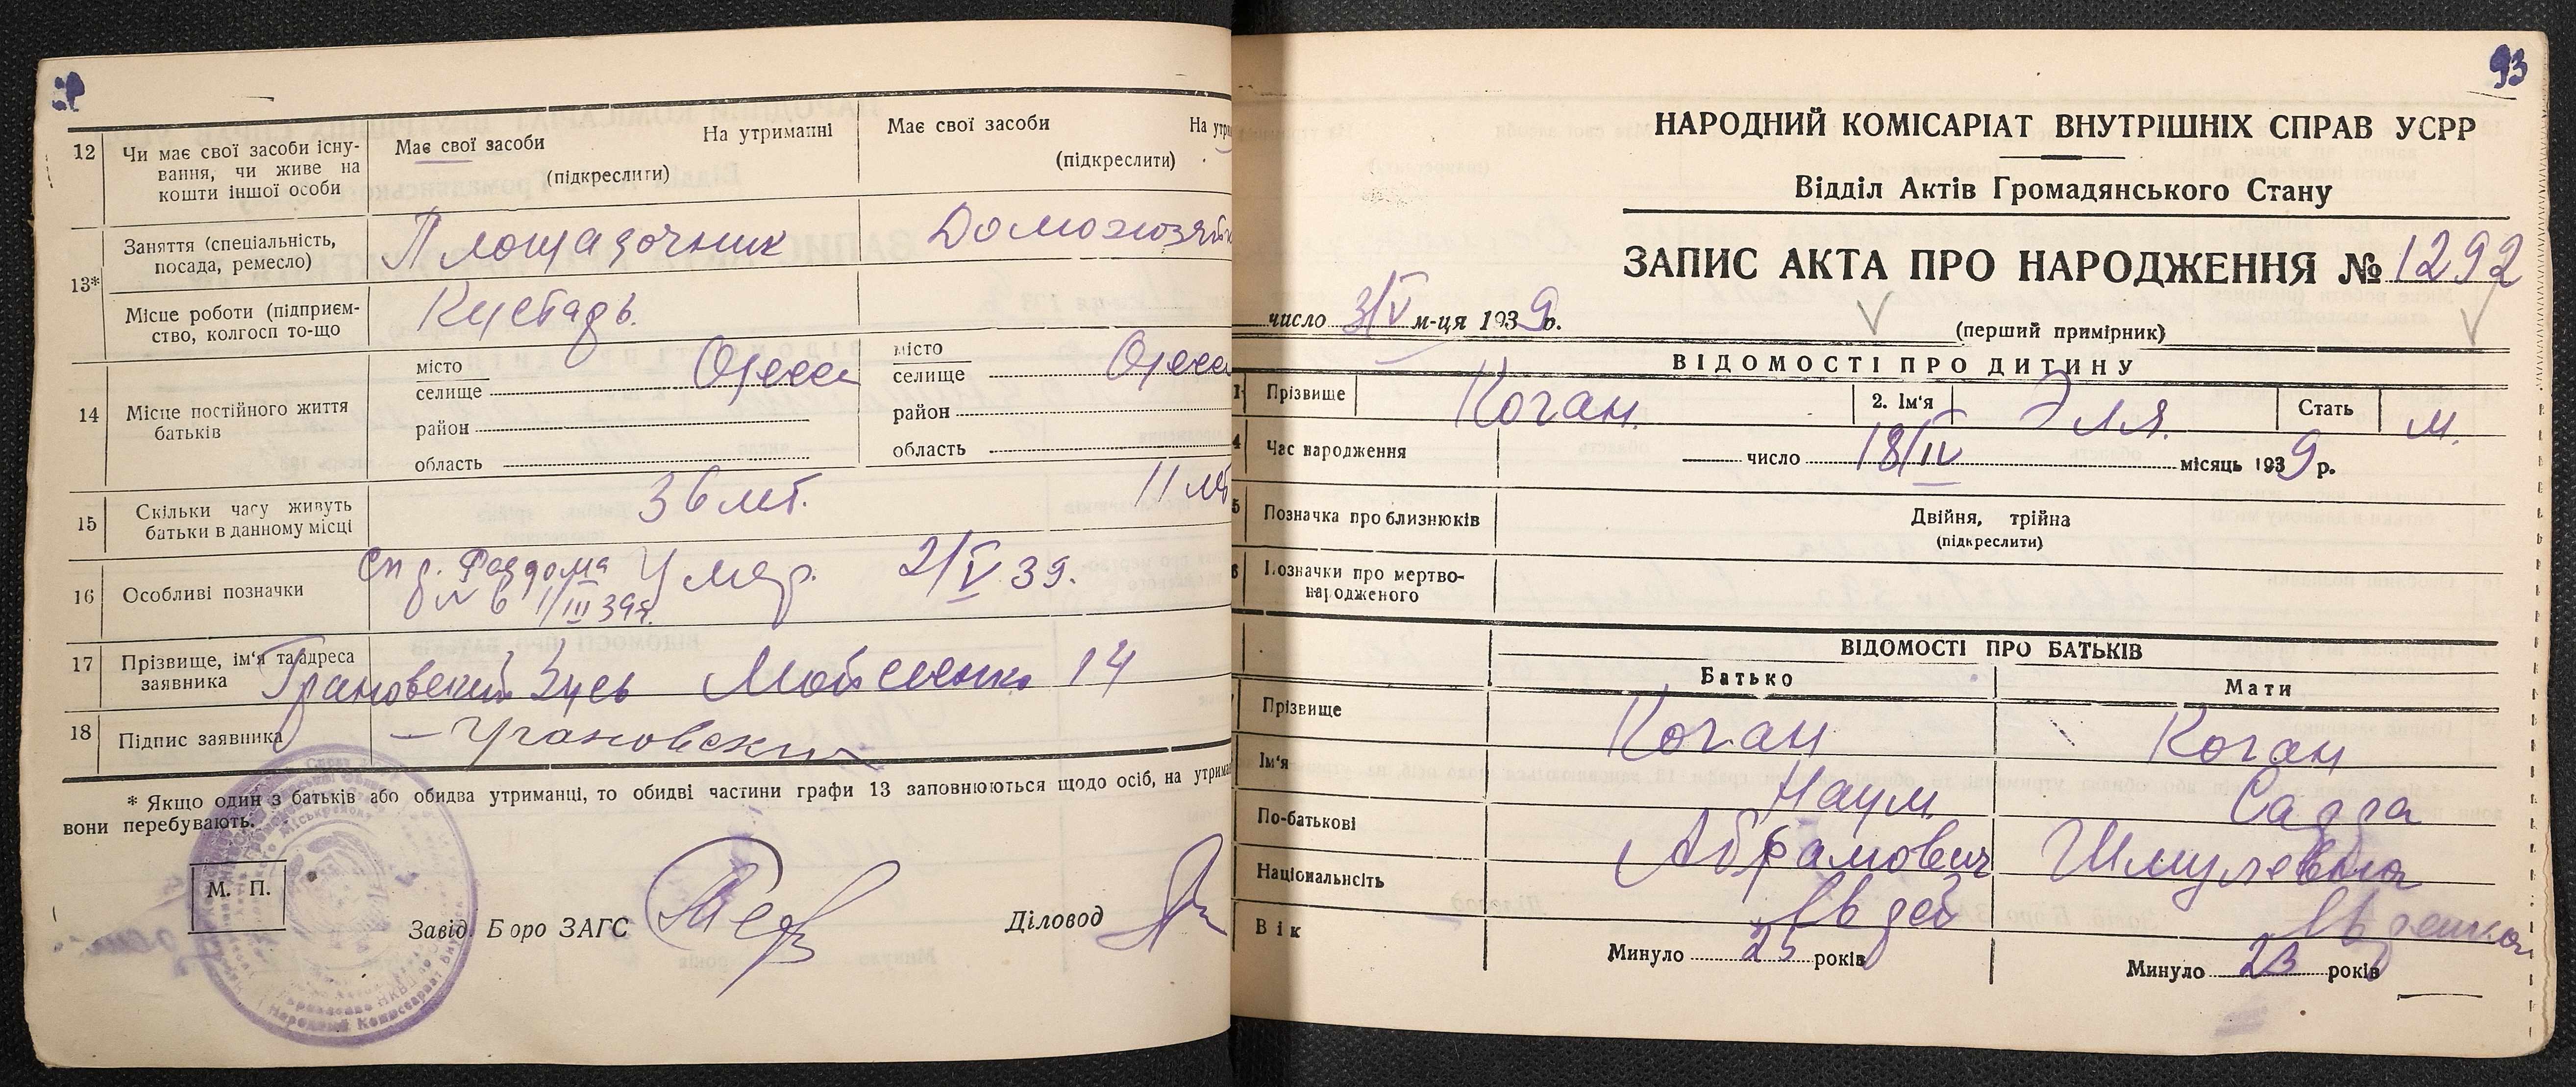 12 Чи має свої засоби існу-
вання, чи живе на
кошти іншої особи
Має свої засоби На утриманні
(підкреслити)
Має свої засоби На утри
(підкреслити)
13*
Заняття (спеціальність,
посада, ремесло)
Площадочник Домохозяйк
Місце роботи (підприєм-
ство, колгосп то-що
14 Місце постійного життя
батьків
місто
селище Одесса
район
область
місто
селище Одесса
район
область
15 Скільки часу живуть
батьки в данному місці
3 б лет. 11 лет
16 Особливі позначки
Спр. Роддома
№ 6 1/III 39г. Умер. 2/V 39.
17 Прізвище, ім'я та адреса
заявника
Грановский Зусь Мойсеенко 14
18 Підпис заявника
Грановский
* Якщо один з батьків або обидва утриманці, то обидві частини графи 13 заповнюються щодо осіб, на утрима
вони перебувають.
М. П.
Завід. Бюро ЗАГС
Діловод
93
НАРОДНИЙ КОМІСАРІАТ ВНУТРІШНІХ СПРАВ УСРР
Відділ Актів Громадянського Стану
ЗАПИС АКТА ПРО НАРОДЖЕННЯ № 1292
число 3/V м-ця 1939 р.
(перший примірник)
ВІДОМОСТІ ПРО ДИТИНУ
1 Прізвище Коган. 2. Ім'я Эля. Стать м.
4 Час народження число 18/IV місяць 1939 р.
5 Позначка про близнюків Двійня, трійна
(підкреслити)
6 Позначки про мертво-
народженого
ВІДОМОСТІ ПРО БАТЬКІВ
Батько Мати
Прізвище Коган Коган
Ім'я Наум Садда
По-батькові Абрамович Шмулевна
Національність Іудей Іудейка
Вік Минуло 25 років Минуло 23 років